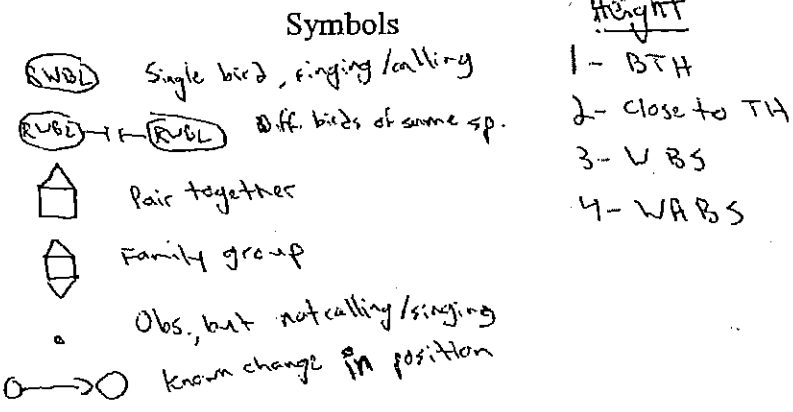 Symbols
RWBL Single bird, singing/calling
RWBL RWBL Diff. birds of same sp.
Pair together
Family group
Obs., but not calling/singing
known change in position
Height
1- BTH
2- Close to TH
3- V BS
4- WABS